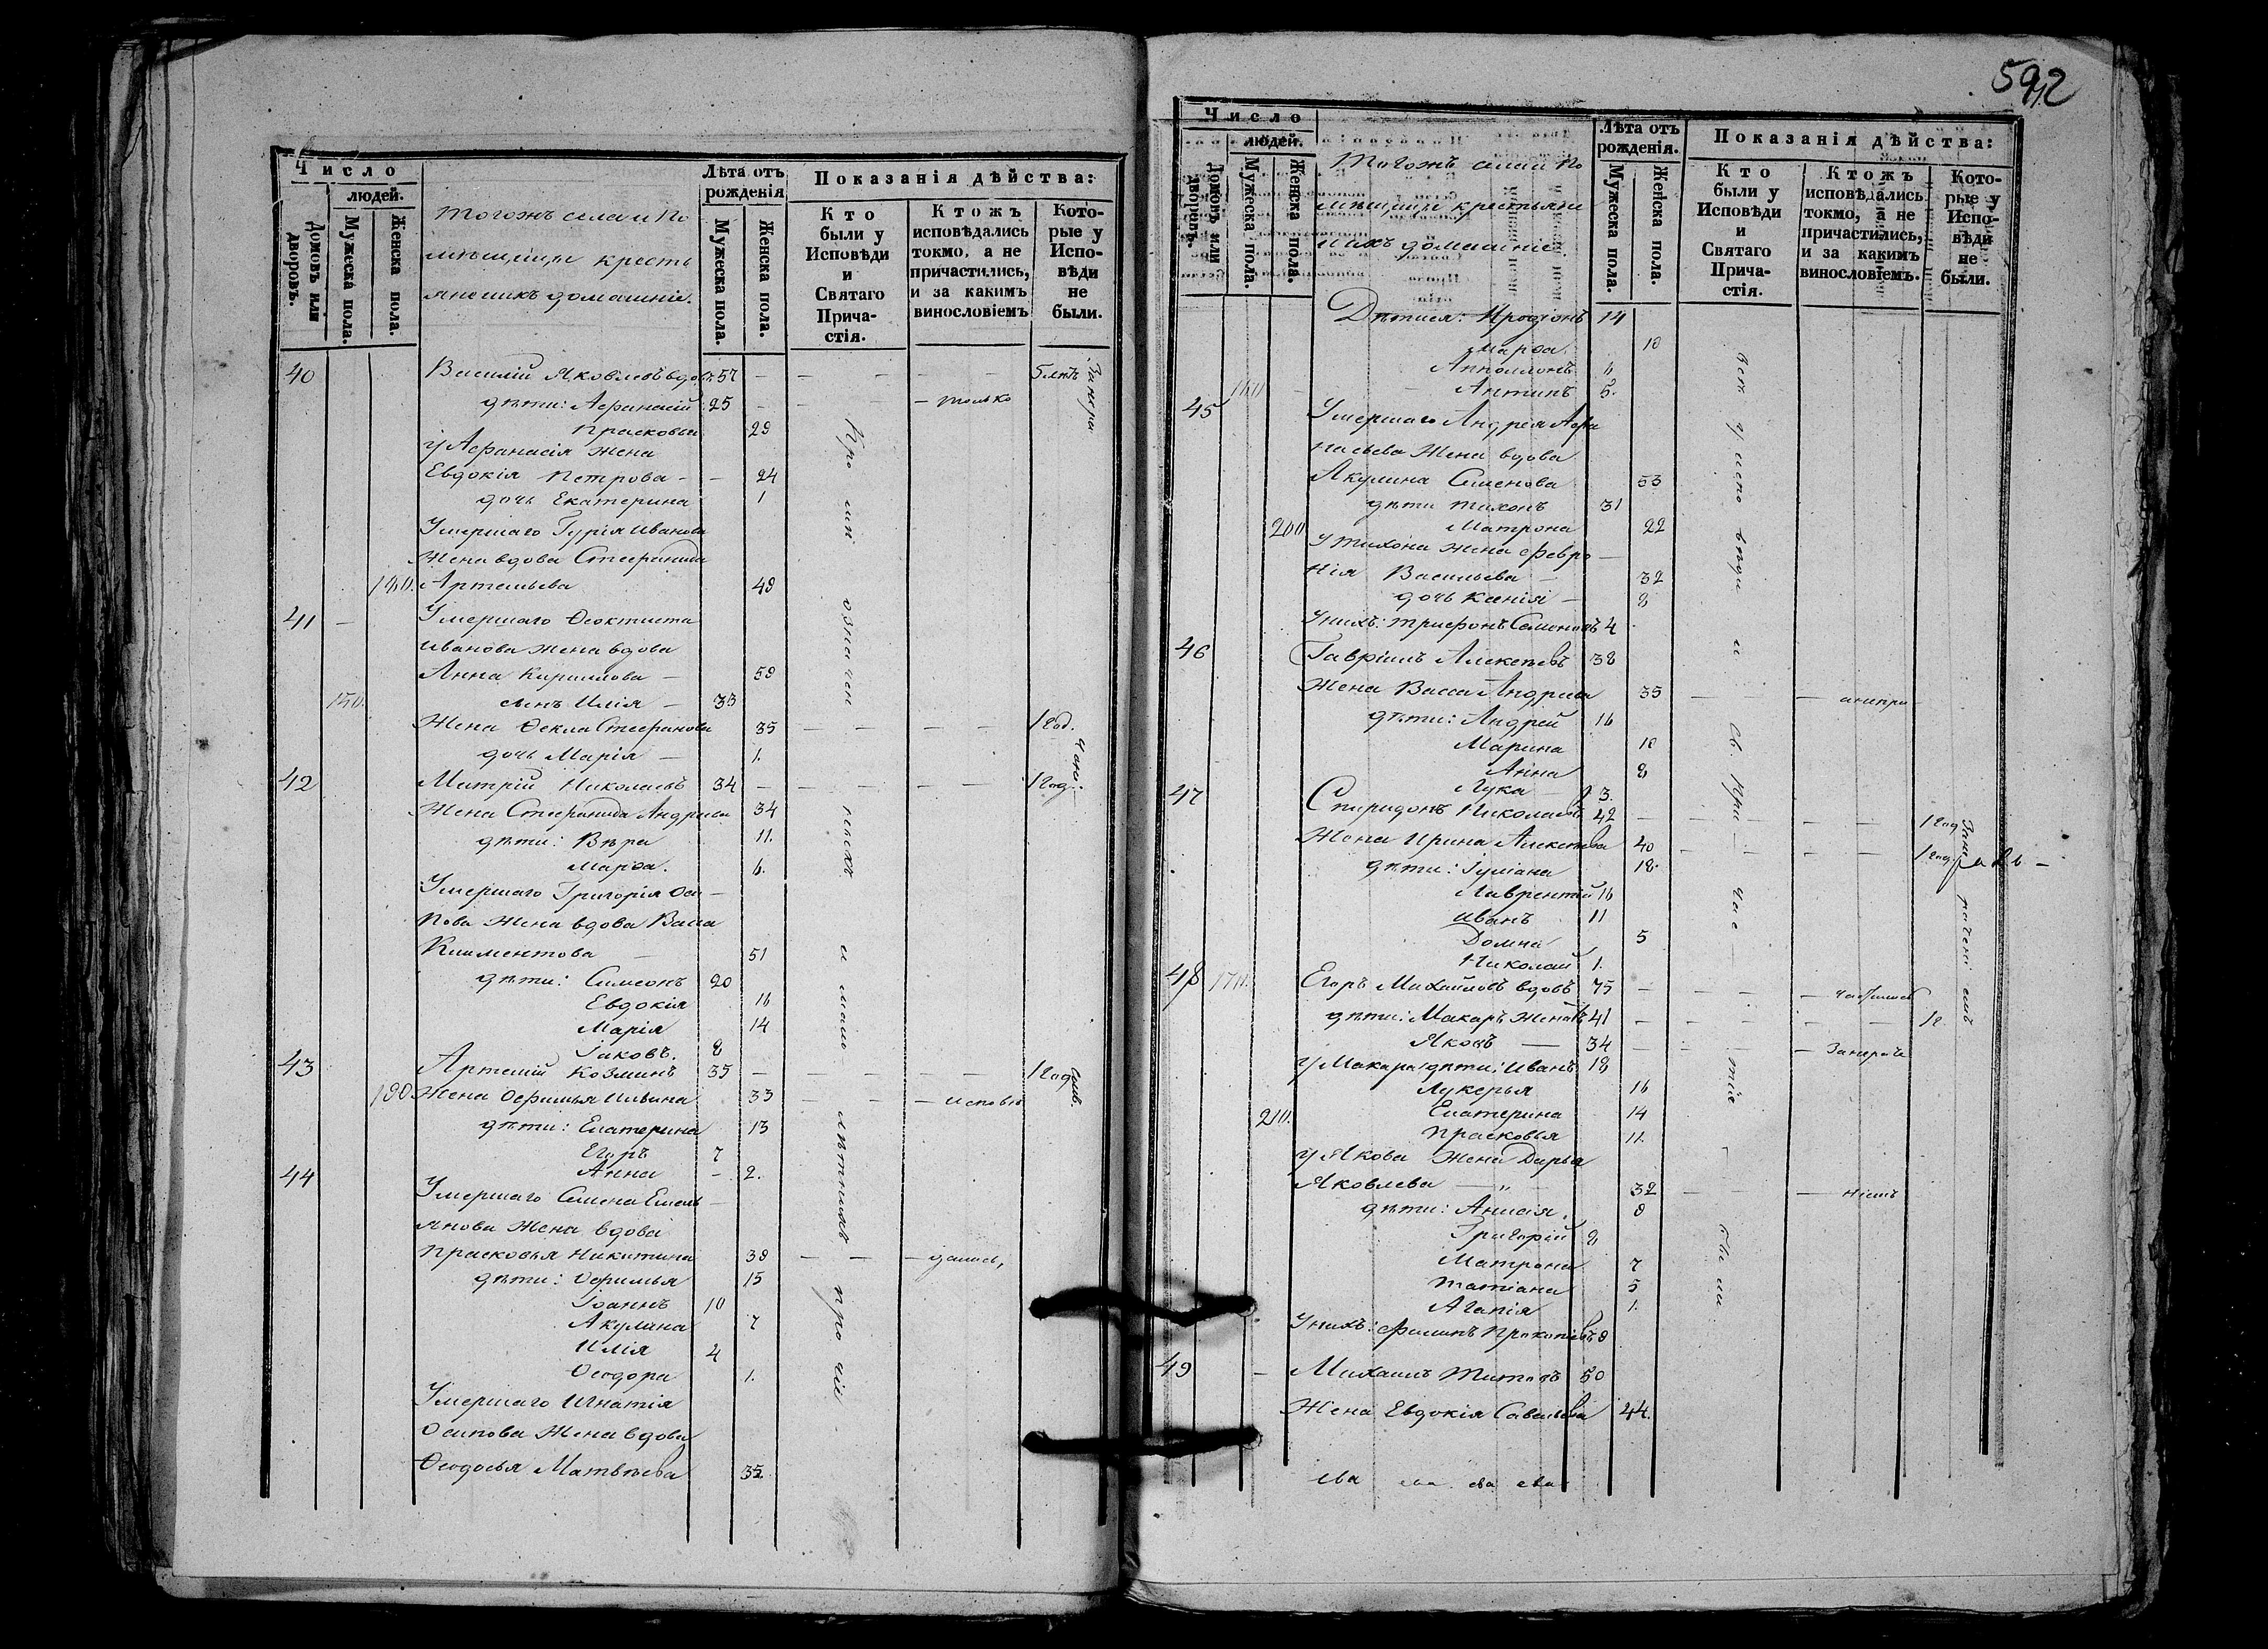 Число
людей.
Домовъ или дворовъ.
Мужеска пола.
Женска пола.
Тогожъ села и По
мѣщицы кресть
яне и ихъ домашніе.
Лѣта отъ рожденія
Мужеска пола.
Женска пола.
Показанія дѣйства:
Кто были у Исповѣди и Святаго Причастія.
Ктожъ исповѣдались токмо, а не причастились, и за какимъ винословіемъ
Которые у Исповѣди не были.
40 Василій Яковлевъ вдовъ 57 — — — — 5 лѣтъ
дѣти: Афанасій 25 — — — только
Прасковья 29
у Афанасія жена
Евдокія Петрова — — 24
дочь Екатерина 1
Умершаго Гурія Иванова
жена вдова Стефанида
180. Артемьева 49
41 — Умершаго Ѳеоктиста
Иванова жена вдова
Анна Кирилова — 59
150. сынъ Илія — 33
Жена Ѳекла Стефанова 35 — — — — 1 год.
дочь Марія — 1.
42 Митрій Николаевъ 34 — — — — 1 год.
Жена Стефанида Андреева 34
дѣти: Вѣра 11.
Марѳа. 6.
Умершаго Григорія Оси —
пова жена вдова Васса
Климентова — 51
дѣти: Симеонъ 20
Евдокія 16
Марія 14
Іаковъ. 8
43 Артемій Козминъ 35 — — — — 1 год
190 Жена Ѳефимья Ильина 33 — — — исповѣ
дѣти: Екатерина 13
Егоръ 7
Анна — 2.
44 Умершаго Семена Емель —
янова жена вдова
Прасковья Никитина 39 — — — дались,
дѣти: Ѳефимья 15
Іоаннъ 10
Акулина 7
Илія 4
Ѳеодора 1.
Умершаго Игнатія
Осипова жена вдова
Ѳеодосья Матвѣева 35.
Кро мѣ означен ныхъ и мало лѣтныхъ про чіи
592
Число
людей.
Домовъ или дворовъ.
Мужеска пола.
Женска пола.
Тогожъ села и По
мѣщицы крестьяне
и ихъ домашніе.
Лѣта отъ рожденія.
Мужеска пола.
Женска пола.
Показанія дѣйства:
Кто были у Исповѣди и Святаго Причастія.
Ктожъ исповѣдались токмо, а не причастились, и за какимъ винословіемъ.
Которые у Исповѣди не были.
Дѣти ея: Иродіонъ 14
Марѳа. 10
Апполлонъ 6
160 Антипъ 5.
45 Умершаго Андрея Афа
насьева жена вдова
Акулина Семенова 53
дѣти Тихонъ 31
200 Матрона 22
у Тихона жена Февро —
нія Васильева — 32
дочь Ксенія — 8
У нихъ: Трифонъ Семеновъ 4
46 Гавріилъ Алексѣевъ 38
Жена Васса Андреева 35 — — — а не при
дѣти: Андрей 16
Марина 10
Анна 8
Лука — 3.
47 Спиридонъ Николаевъ 42 — — — — 1 год
Жена Ирина Алексѣева 40 — — — — 1 год
дѣти: Іуліана 18.
Лаврентій 16
Иванъ 11
Домна 5
Николай 1.
48 170. Егоръ Михайловъ вдовъ 75 — — — — частились
дѣти: Макаръ женатъ 41 — — — — — 1г
Яковъ — 34 — — — — Занера
у Макара дѣти: Иванъ 18
Лукерья 16
210. Екатерина 14
Прасковья 11.
у Якова жена Дарья
Яковлева — „ — 32 — — — ніемъ
дѣти: Анисія. 9
Григорій 8
Матрона 7
Татіана 5
Агапія 1.
У нихъ: Филипъ Прокопіевъ 9
49 — Михаилъ Титовъ 50
Жена Евдокія Савельева 44.
всѣ у испо вѣди и Св. При час тіе бы ли.
ева ева ева ева